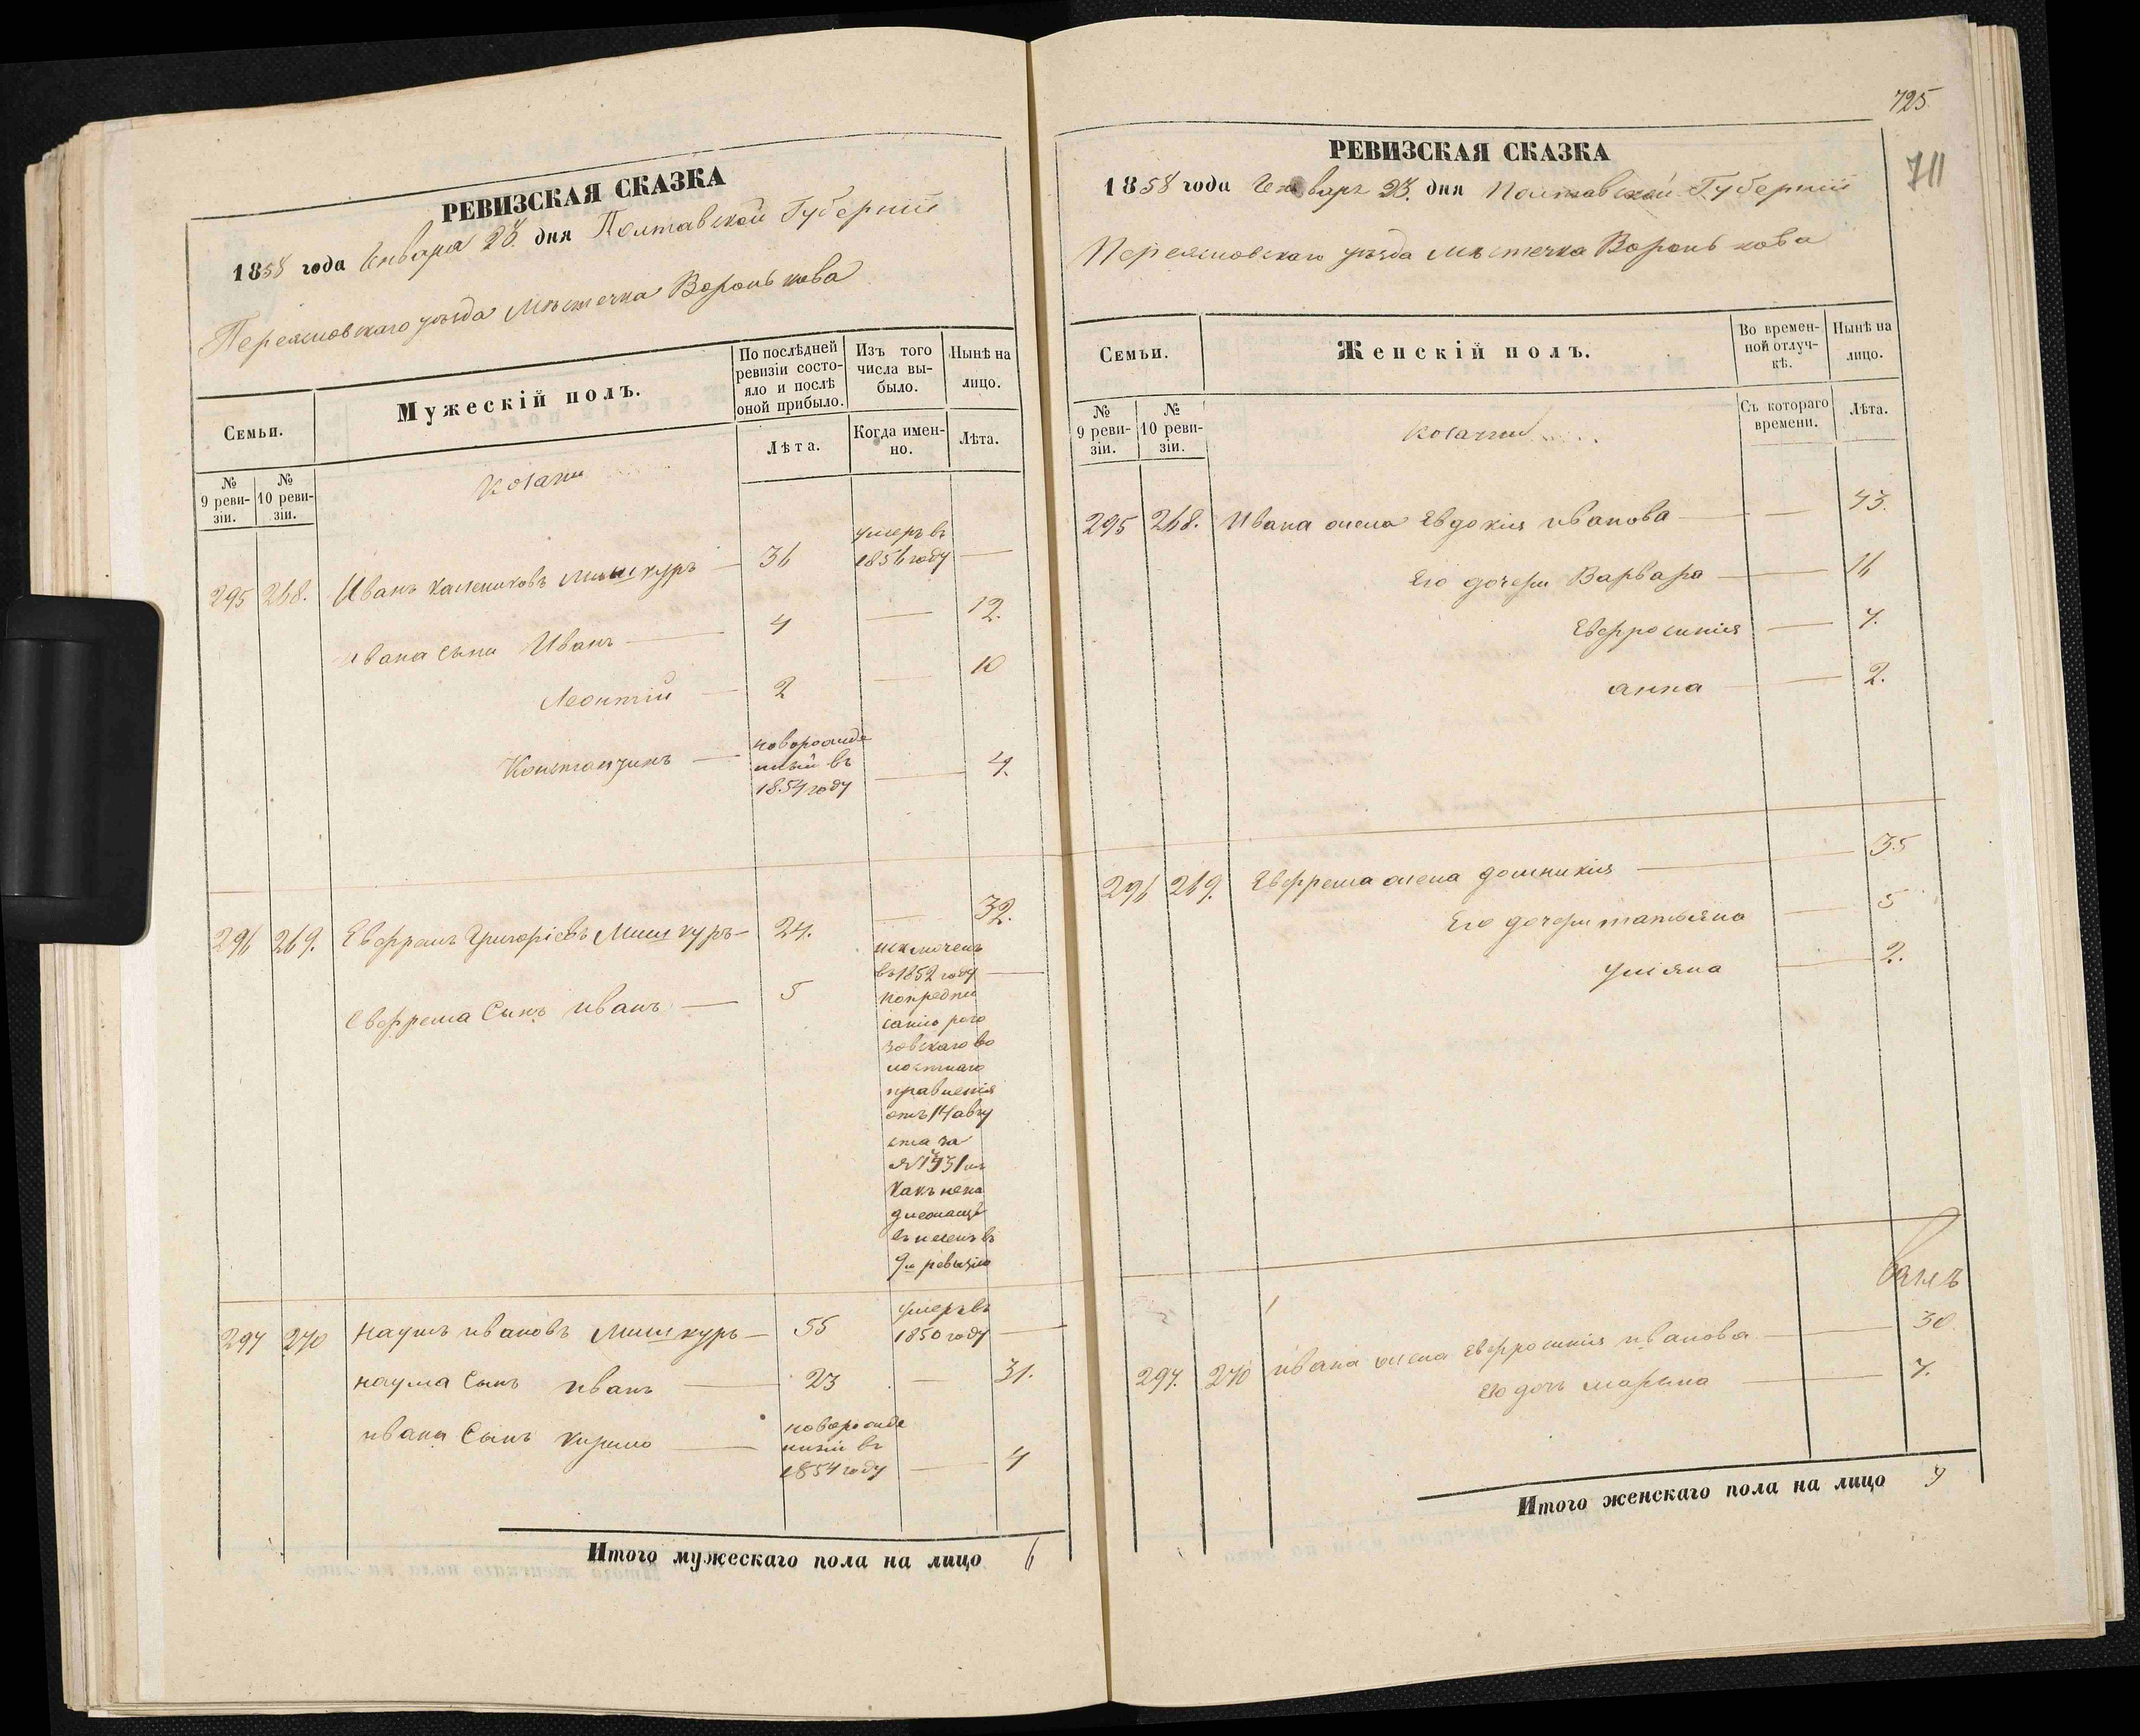 РЕВИЗСКАЯ СКАЗКА
1858 года Енваря 28. дня Полтавской Губерніи
Переясловскаго уѣзда Мѣстечка Воронькова
Семьи.
Мужескій полъ.
По послѣдней ревизіи состо-
яло и послѣ
оной прибыло.
Изъ того
числа вы-
было.
Нынѣ на
лицо.
№
9 реви-
зіи.
№
10 реви-
зіи.
Козаки
Лѣта.
Когда имен-
но.
Лѣта.
295 268. Иванъ Калениковъ Мишкуръ — 36 умеръ въ
1856 году —
Ивана сыны Иванъ — 4 — 12.
Леонтій — 2 — 10
Константинъ — новорожде
нный въ
1854 году — 4.
296 269. Евфремъ Григоріевъ Мишкуръ — 24. — 32.
Евфрема Сынъ иванъ — 5 исключенъ
въ 1852 году —
попредпи
санію рого
зовскаго во
лостнаго
правленія
отъ 14 авгу
ста за
какъ нена
длежаще
9ю ревызію
297 270 Наумъ ивановъ Мишкуръ — 55 умеръ въ
1850 году —
наума Сынъ иванъ — 23 — 31.
ивана Сынъ Кирило — новорожде
нный въ
1854 году — 4
Итого мужескаго пола на лицо 6
725
711
РЕВИЗСКАЯ СКАЗКА
1858 года Генваря 28. дня Полтавской Губерніи
Переясловскаго уѣзда Мѣстечка Воронькова
Семьи.
Женскій полъ.
Во времен-
ной отлуч-
кѣ.
Нынѣ на
лицо.
№
9 реви-
зіи.
№
10 реви-
зіи.
Козачки
Съ котораго
времени.
Лѣта.
295 268. Ивана жена Евдокія иванова — — 43.
Его дочери Варвара — 16
Евфросинія — 7.
анна — 2.
296 269. Евфрема жена домникія — 35
Его дочери татьяна — 5
уліяна — 2.
297. 270 ивана жена Евфросинія иванова — 30.
Его дочь марына — 7.
Итого женскаго пола на лицо 9